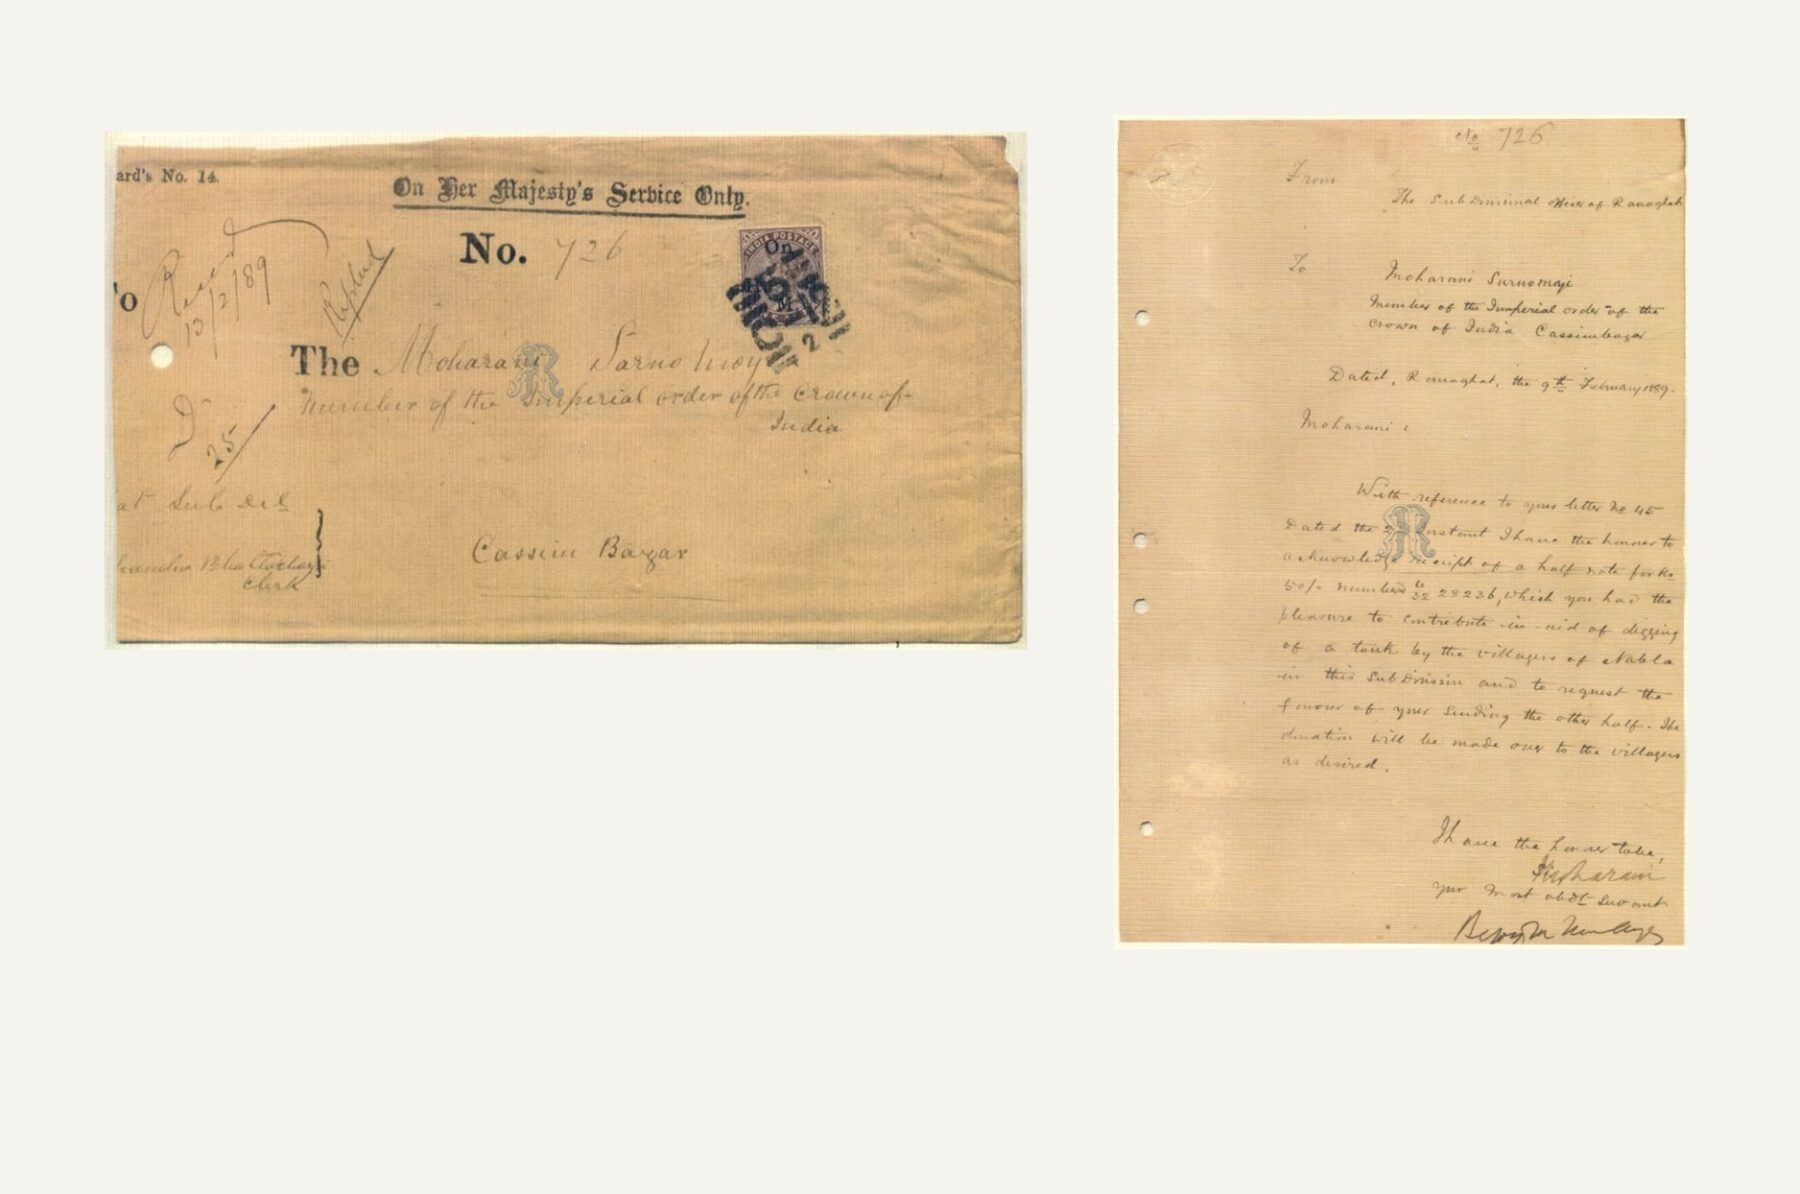 ard's No. 14.
On Her Majesty's Service Only.
No. 726
'o
Recd
13/2/89
Replied
INDIA POSTAGE
On
M
The Moharani Sarno Moye
R
Member of the Imperial order of the Crown of
India
D
25
at Sub Del
Bhattachary
clerk
Cassim Bazar
No 726
From
The SubDivisional Officer of Ranaghat
To
Moharani Surnomaji
Member of the Imperial order of the
Crown of India Cassimbazar
Dated, Ranaghat, the 9th February 1889.
Moharani:
With reference to your letter No 45
Dated the 2 instant I have the honour to
R
acknowledge receipt of a half note for Rs
50/- number 32 28236, which you had the
pleasure to contribute in aid of digging
of a tank by the villagers of Nabla
in this SubDivision and to request the
favour of your sending the other half. The
donation will be made over to the villagers
as desired.
I have the honour to be,
Moharani
your most obdt Servant